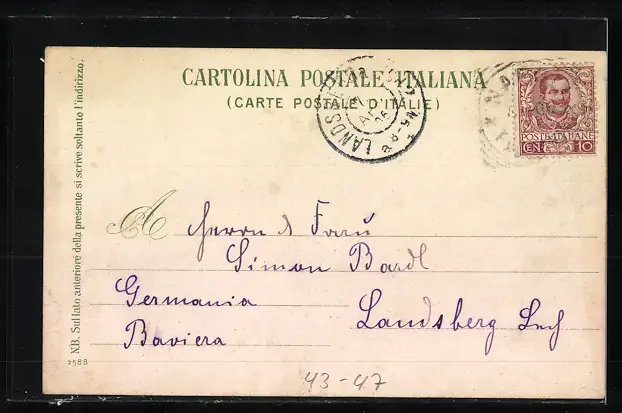 CARTOLINA POSTALE ITALIANA
(CARTE POSTALE D'ITALIE)
POSTE ITALIANE
CEN 10
LANDSBERG
A Herrn & Frau
Simon Bardl
Germania
Landsberg Lech
Baviera
N.B. Sul lato anteriore della presente si scrive soltanto l'indirizzo.
7588
43-47